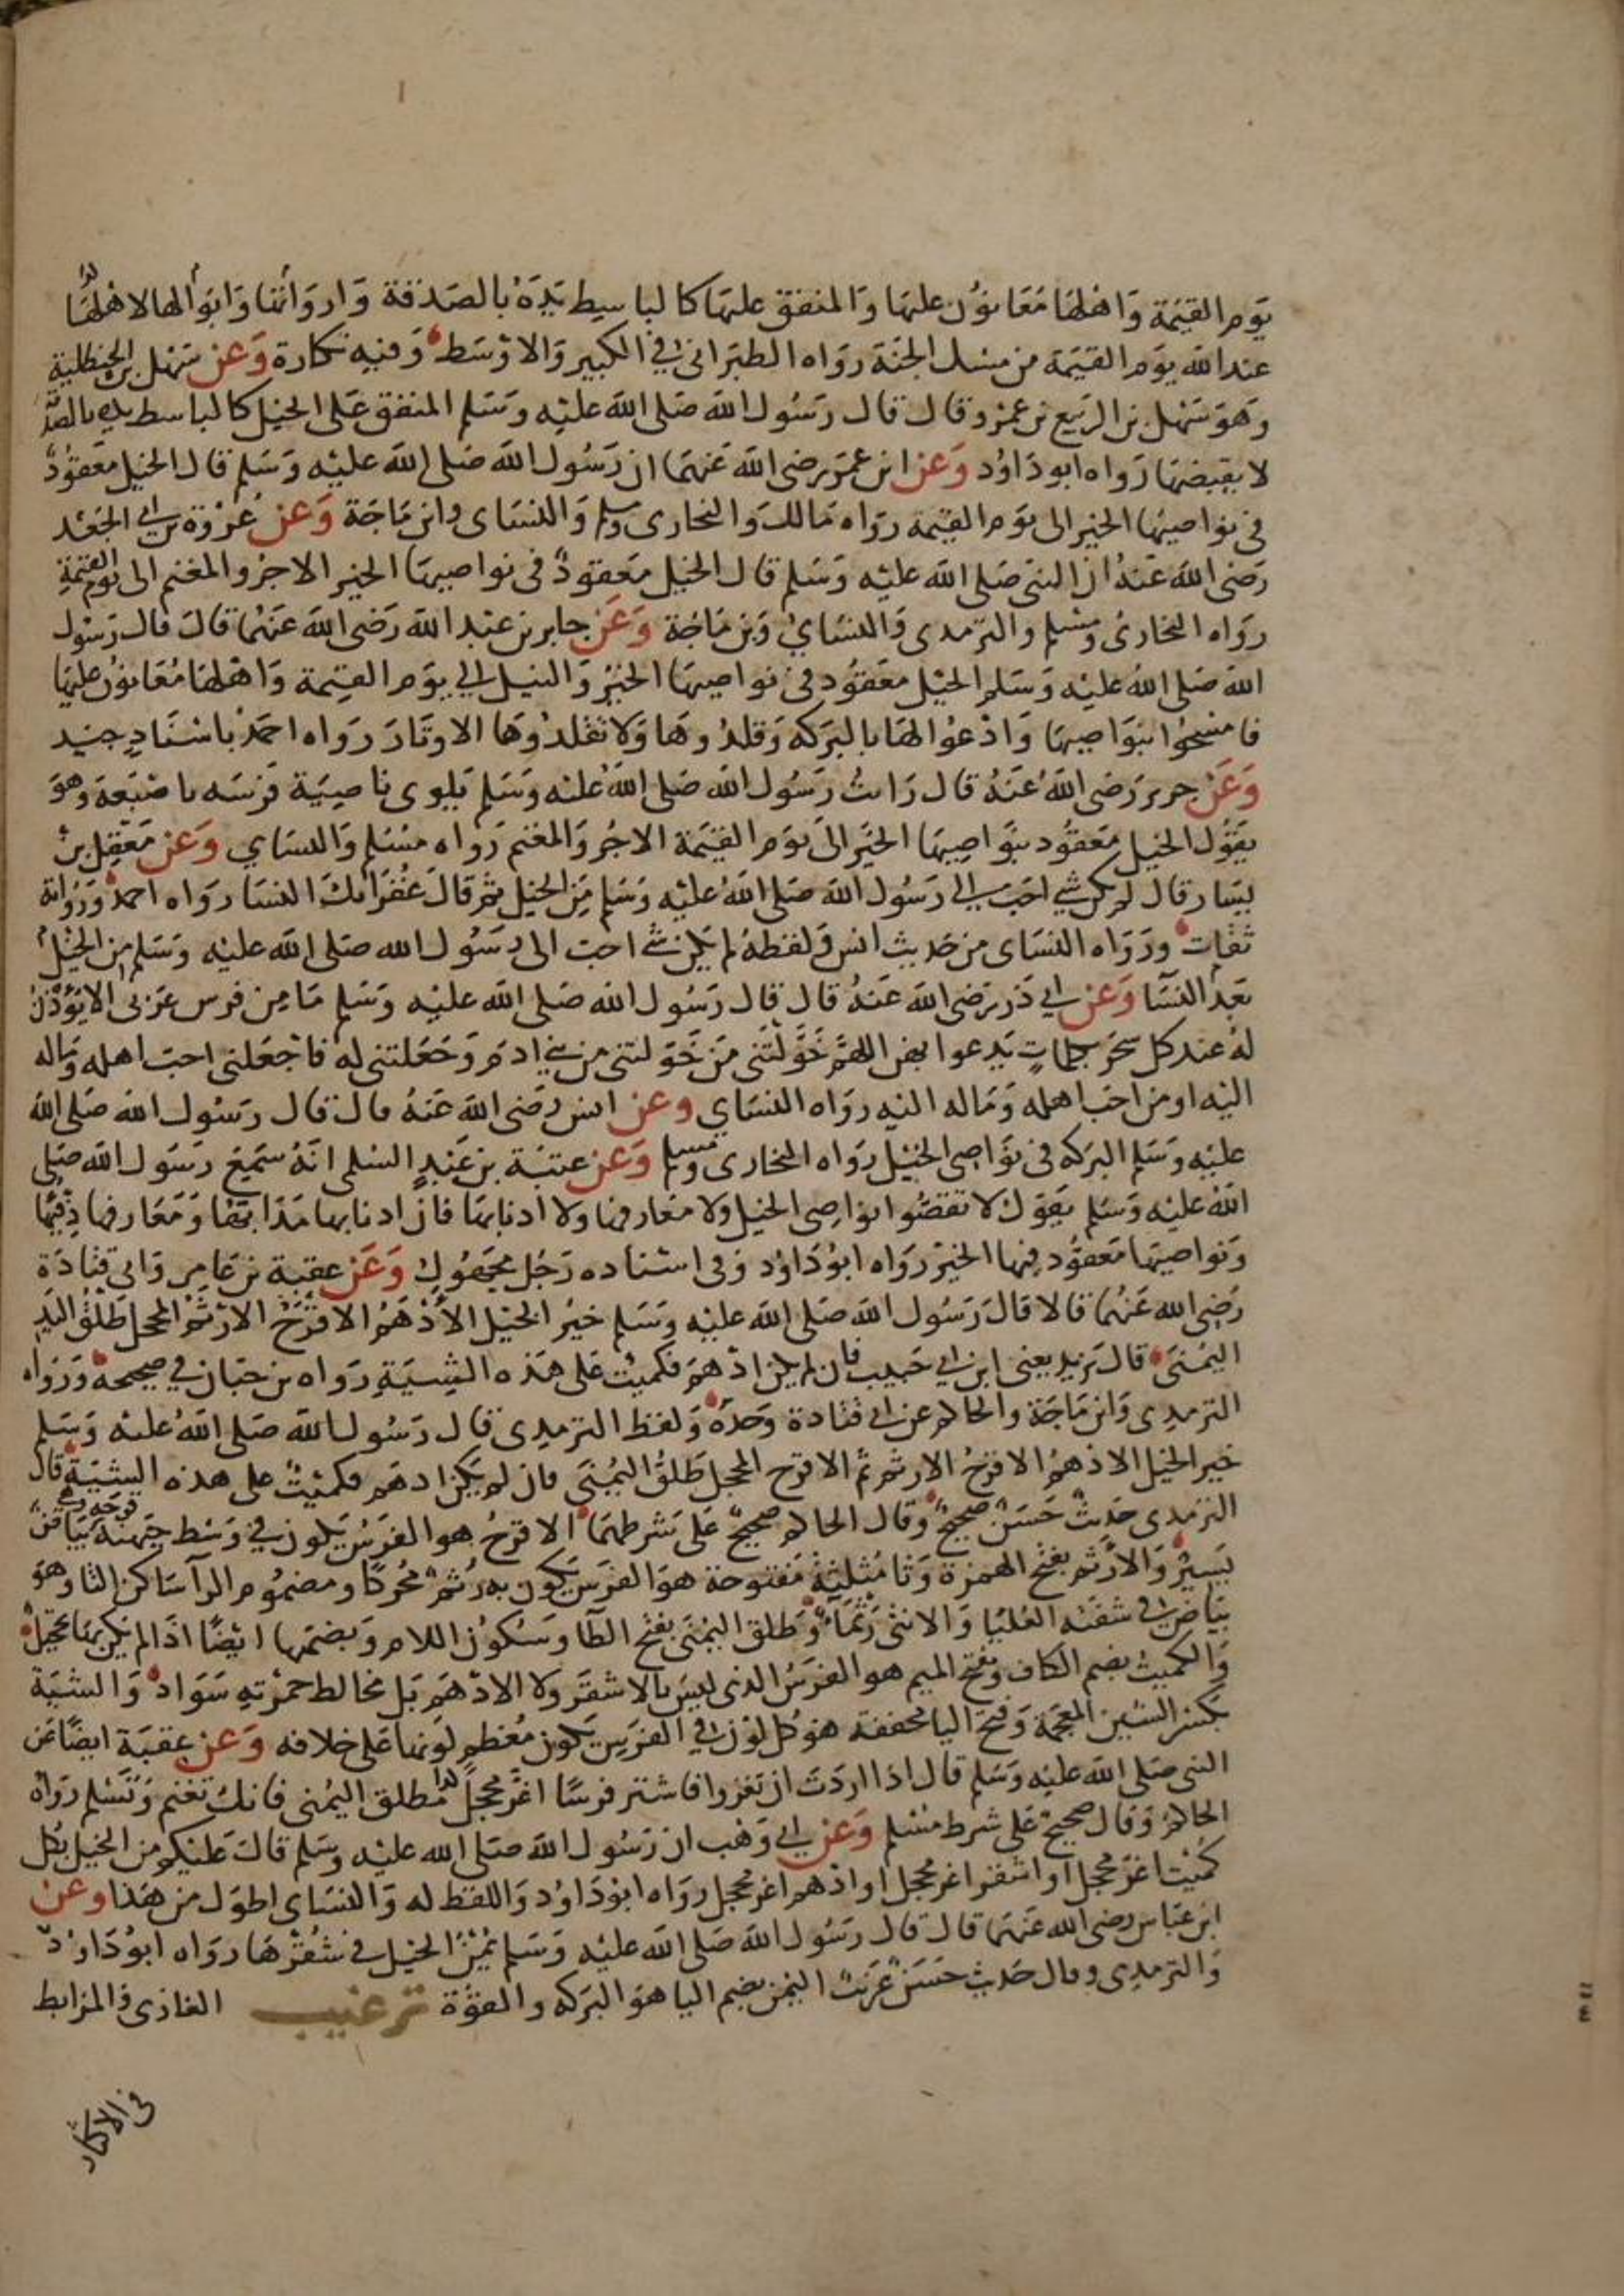 يوم القيمة واهلها معانون عليها والمنفق عليها كالباسط يده بالصدقة وارواثها وابوالها لاهلها
عند الله يوم القيمة من مسك الجنة رواه الطبراني في الكبير والاوسط وفيه نكارة وعن سهل بن الحنظلية
وهو سهل بن الربيع بن عمرو قال قال رسول الله صلى الله عليه وسلم المنفق على الخيل كالباسط يده بالصد
لا يقبضها رواه ابو داود وعن ابن عمر رضي الله عنهما ان رسول الله صلى الله عليه وسلم قال الخيل معقود
في نواصيها الخير الى يوم القيمة رواه مالك والبخاري ومسلم والنساي وابن ماجة وعن عروة بن ابي الجعد
رضي الله عنه ان النبي صلى الله عليه وسلم قال الخيل معقود في نواصيها الخير الاجر والمغنم الى يوم القيمة
رواه البخاري ومسلم والترمدي والنساي وبن ماجة وعن جابر بن عبد الله رضي الله عنهما قال قال رسول
الله صلى الله عليه وسلم الخيل معقود في نواصيها الخير والنيل الي يوم القيمة واهلها معانون عليها
فامسحوا بنواصيها وادعوا لها بالبركه وقلدوها ولا تقلدوها الاوتار رواه احمد باسناد جيد
وعن جرير رضي الله عنه قال رايت رسول الله صلى الله عليه وسلم يلوي ناصية فرسه باصبعه وهو
يقول الخيل معقود بنواصيها الخير الى يوم القيمة الاجر والمغنم رواه مسلم والنساي وعن معقل بن
يسار قال لم يكن شي احب الي رسول الله صلى الله عليه وسلم من الخيل ثم قال غفرانك النسا رواه احمد ورواته
ثقات ورواه النساي من حديث انس ولفظه لم يكن شي احب الى رسول الله صلى الله عليه وسلم من الخيل
بعد النسا وعن ابي ذر رضي الله عنه قال قال رسول الله صلى الله عليه وسلم ما من فرس عربي الا يؤذن
له عند كل سحر بكلمات يدعوا بهن اللهم خولتني من خولتني من بني ادم وجعلتني له فاجعلني احب اهله وماله
اليه او من احب اهله وماله اليه رواه النساي وعن انس رضي الله عنه قال قال رسول الله صلى الله
عليه وسلم البركه في نواصي الخيل رواه البخاري ومسلم وعن عتبة بن عبد السلمي انه سمع رسول الله صلى
الله عليه وسلم يقول لا تقصوا نواصي الخيل ولا معارفها ولا ادنابها فان ادنابها مذابها ومعارفها دفيها
ونواصيها معقود فيها الخير رواه ابو داود وفي اسناده رجل مجهول وعن عقبة بن عامر وابي قتادة
رضي الله عنهما قالا قال رسول الله صلى الله عليه وسلم خير الخيل الادهم الاقرح الارثم المحجل طلق اليد
اليمنى قال يزيد يعني ابن ابي حبيب فان لم يكن ادهم فكميت على هذه الشية رواه بن حبان في صحيحه ورواه
الترمدي وابن ماجة والحاكم عن ابي قتادة وحده ولفظ الترمدي قال رسول الله صلى الله عليه وسلم
خير الخيل الادهم الاقرح الارثم ثم الاقرح المحجل طلق اليمنى فان لم يكن ادهم فكميت على هذه الشية قال
الترمدي حديث حسن صحيح وقال الحاكم صحيح على شرطهما الاقرح هو الفرس يكون في وسط جبهته قرحه وهي بياض
يسير والارثم بفتح الهمزة وثا مثلثة مفتوحة هو الفرس يكون به رثم محركا ومضموم الرا ساكن الثا وهو
بياض في شفته العليا والانثى رثما وطلق اليمنى بفتح الطا وسكون اللام وبضمها ايضا اذا لم يكن بها تحجيل
والكميت بضم الكاف وفتح الميم هو الفرس الذي ليس بالاشقر ولا الادهم بل مخالط حمرته سواد والشية
بكسر الشين المعجمة وفتح اليا مخففه هو كل لون في الفرس يكون معظم لونها على خلافه وعن عقبة ايضا عن
النبي صلى الله عليه وسلم قال اذا اردت ان تغزوا فاشتر فرسا اغر محجلا مطلق اليمنى فانك تغنم وتسلم رواه
الحاكم وقال صحيح على شرط مسلم وعن ابي وهب ان رسول الله صلى الله عليه وسلم قال عليكم من الخيل بكل
كميت اغر محجل او اشقر اغر محجل او ادهم اغر محجل رواه ابو داود واللفظ له والنساي اطول من هذا وعن
ابن عباس رضي الله عنهما قال قال رسول الله صلى الله عليه وسلم يمن الخيل في شقرها رواه ابو داود
والترمدي وقال حديث حسن غريب اليمن بضم اليا هو البركه والقوة ترغيب الغازي والمرابط
في الاكثار